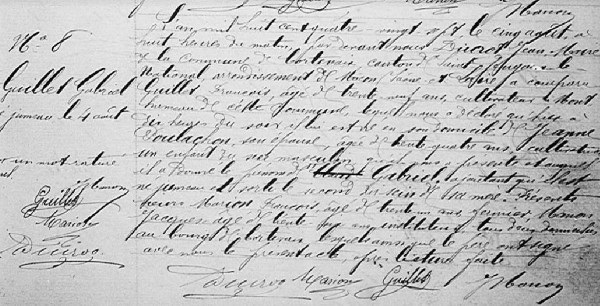 N° 8
Guillet Gabriel
jumeau le 4 août
L'an mil huit cent quatre vingt sept le cinq août, à
huit heures du matin, par devant nous Ducrot Jean-Marie
de la commune de Cortevaix canton de Saint Gengoux-le-
National, arrondissement de Mâcon Saône et Loire, a comparu
Guillet François, âgé de trente neuf ans, cultivateur à Mont
hameau de cette commune, lequel nous a déclaré que hier à
heures du soir il est né en son domicile de Jeanne
son épouse, âgée de trente quatre ans cultivatrice
un enfant du sexe masculin qu'il nous a présenté et auquel
il a donné le prénom de Gabriel déclarant que c'est
jumeau et sorti le second du sein de sa mère. Présents
Marion François âgé de trente un ans
Jacques âgé de trente six ans instituteur, tous deux domiciliés
au bourg de Cortevaix, lesquels ainsi que le père ont signé
avec nous le présent acte, après lecture faite
Ducrot Marion Guillet
Guillet
Marion
Ducrot